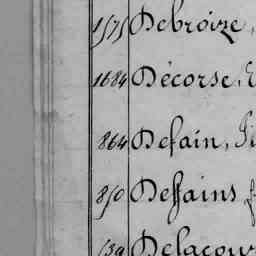 1575 Debroize,
1684 Décorse,
864 Defain,
850 Deffains
139 Delacour